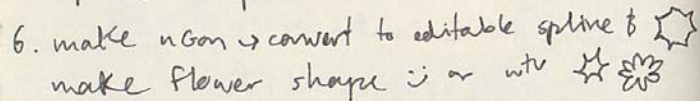 6. make nGon → convert to editable spline &
make flower shape :) or wtv